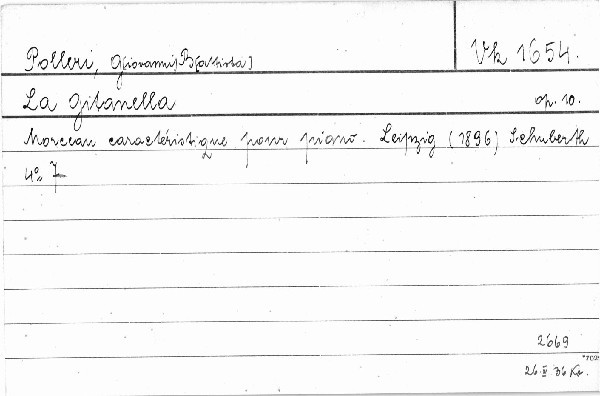 Polleri, G[iovanni] B[attista]
Vk 1654.
La Gitanella op. 10.
Morceau caractéristique pour piano. Leipzig (1896) Schuberth
4° 7
2669
26 II 36 Kr.